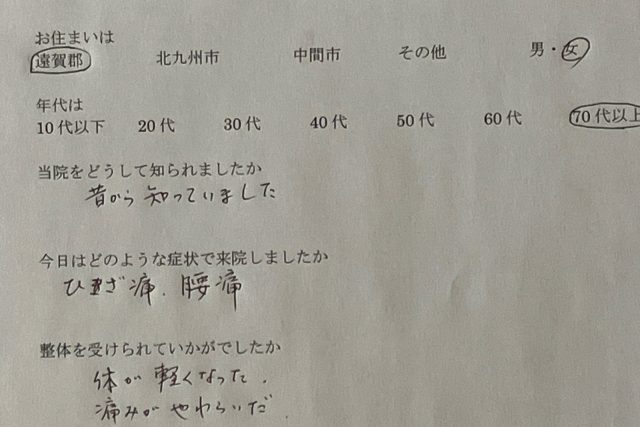 お住まいは
遠賀郡 北九州市 中間市 その他 男・女
年代は
10代以下 20代 30代 40代 50代 60代 70代以上
当院をどうして知られましたか
昔から知っていました
今日はどのような症状で来院しましたか
ひざ痛、腰痛
整体を受けられていかがでしたか
体が軽くなった。
痛みがやわらいだ。